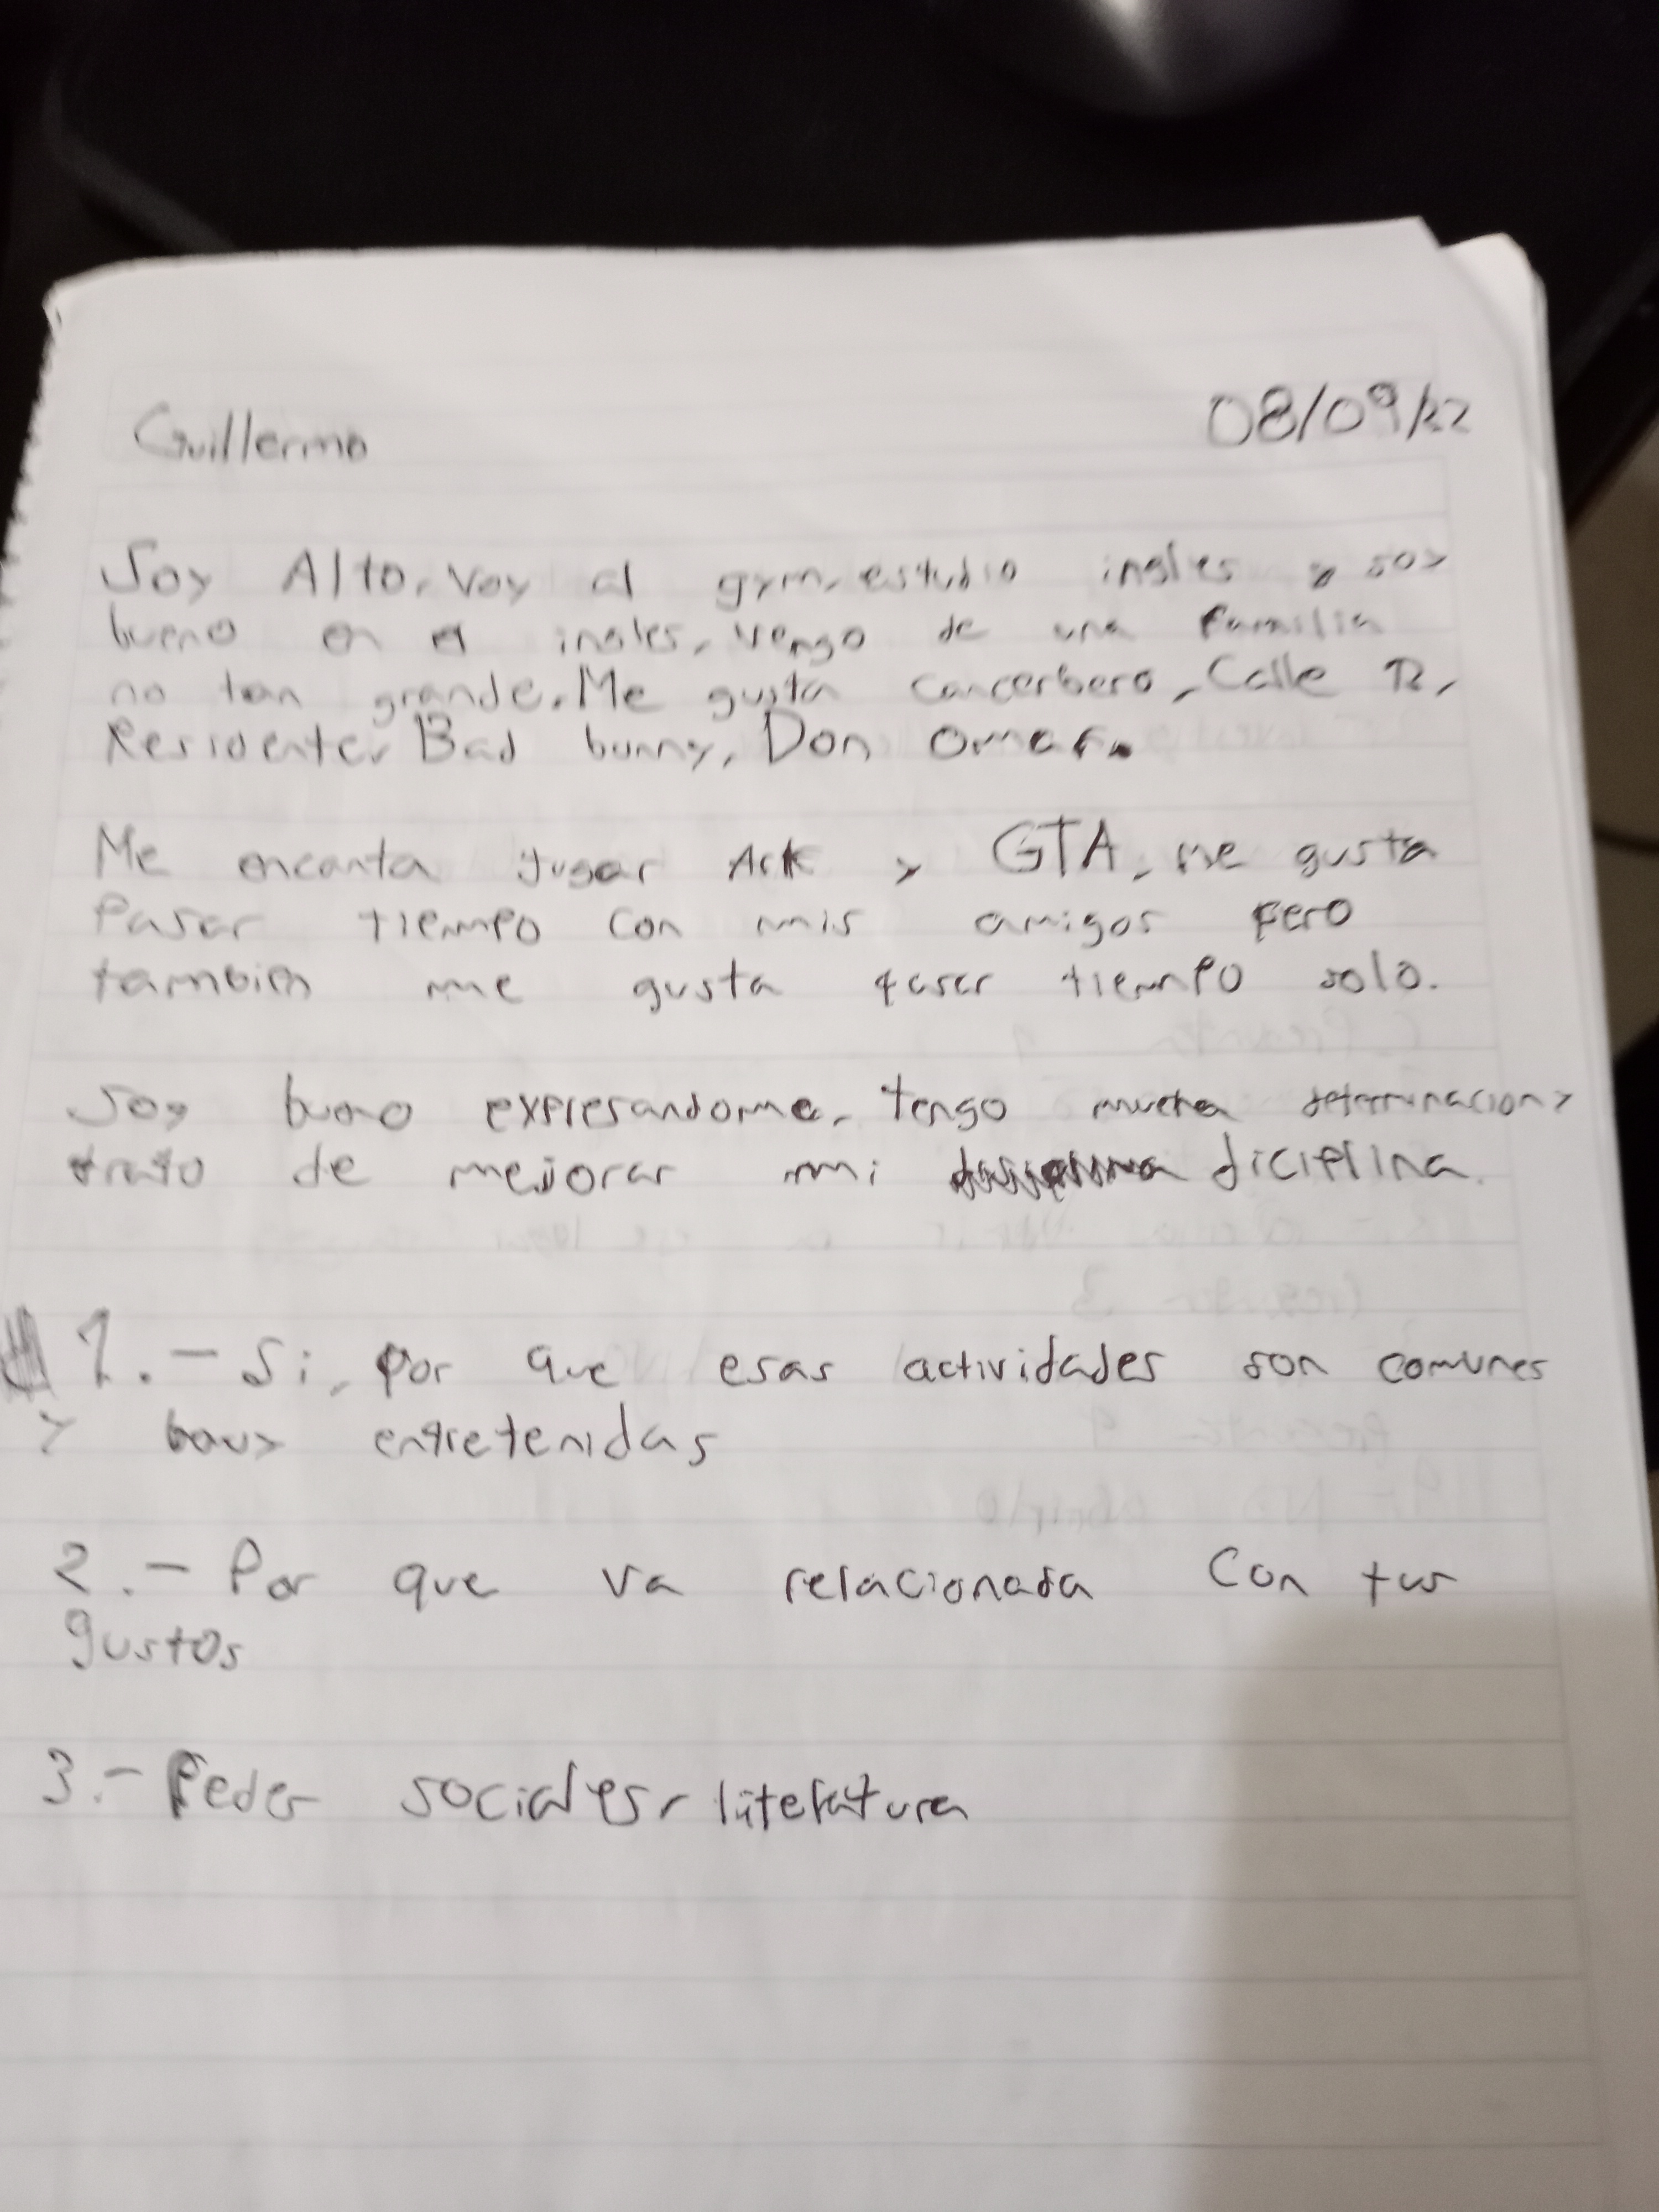 Guillermo 08/09/22
Soy Alto, voy al gym, estudio ingles y soy
bueno en el ingles, vengo de una familia
no tan grande. Me gusta cancerbero, Calle 13,
Residente, Bad bunny, Don Omar.
Me encanta jugar Ark y GTA, me gusta
Pasar tiempo con mis amigos pero
tambien me gusta pasar tiempo solo.
Soy bueno expresandome, tengo mucha determinacion y
trato de mejorar mi diciplina.
1.- Si, por que esas actividades son comunes
y entretenidas
2.- Por que va relacionada con tus
gustos
3.- Redes sociales, literatura